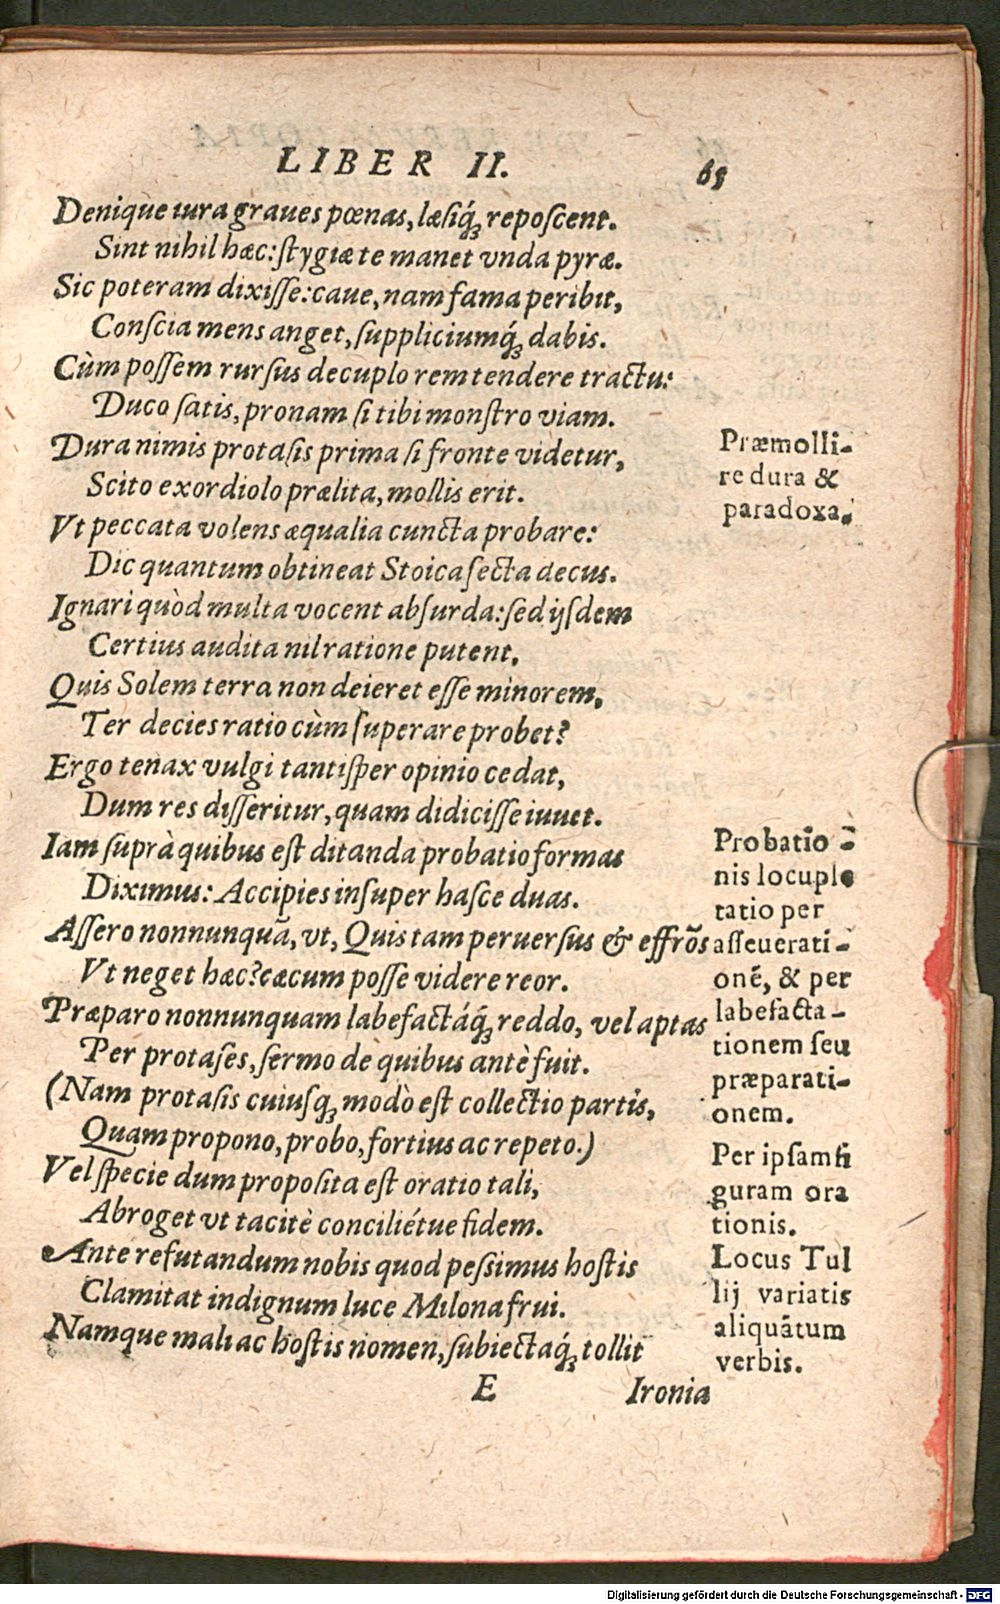 LIBER II. 65
Denique iura graues pœnas, læsiq́ꝫ reposcent.
Sint nihil hæc: stygiæ te manet vnda pyræ.
Sic poteram dixisse: caue, nam fama peribit,
Conscia mens anget, suppliciumq́ꝫ dabis.
Cùm possem rursus decuplo rem tendere tractu:
Duco satis, pronam si tibi monstro viam.
Dura nimis protasis prima si fronte videtur,
Scito exordiolo prælita, mollis erit.
Vt peccata volens æqualia cuncta probare:
Dic quantum obtineat Stoica secta decus.
Ignari quòd multa vocent absurda: sed ijsdem
Certius audita nil ratione putent.
Quis Solem terra non deieret esse minorem,
Ter decies ratio cùm superare probet?
Ergo tenax vulgi tantisper opinio cedat,
Dum res disseritur, quam didicisse iuuet.
Iam suprà quibus est ditanda probatio formas
Diximus: Accipies insuper hasce duas.
Assero nonnunquã, vt, Quis tam peruersus & effrõs
Vt neget hæc? cæcum posse videre reor.
Præparo nonnunquam labefactáq́ꝫ reddo, vel aptas
Per protases, sermo de quibus antè fuit.
(Nam protasis cuiusqꝫ modò est collectio partis,
Quam propono, probo, fortius ac repeto.)
Vel specie dum proposita est oratio tali,
Abroget vt tacitè conciliétue fidem.
Ante refutandum nobis quod pessimus hostis
Clamitat indignum luce Milona frui.
Namque mali ac hostis nomen, subiectaq́ꝫ tollit
E Ironia
Præmolli-
re dura &
paradoxa.
Probatio
nis locuple
tatio per
asseuerati-
onẽ, & per
labefacta-
tionem seu
præparati-
onem.
Per ipsam fi
guram ora
tionis.
Locus Tul
lij variatis
aliquãtum
verbis.
Digitalisierung gefördert durch die Deutsche Forschungsgemeinschaft - DFG